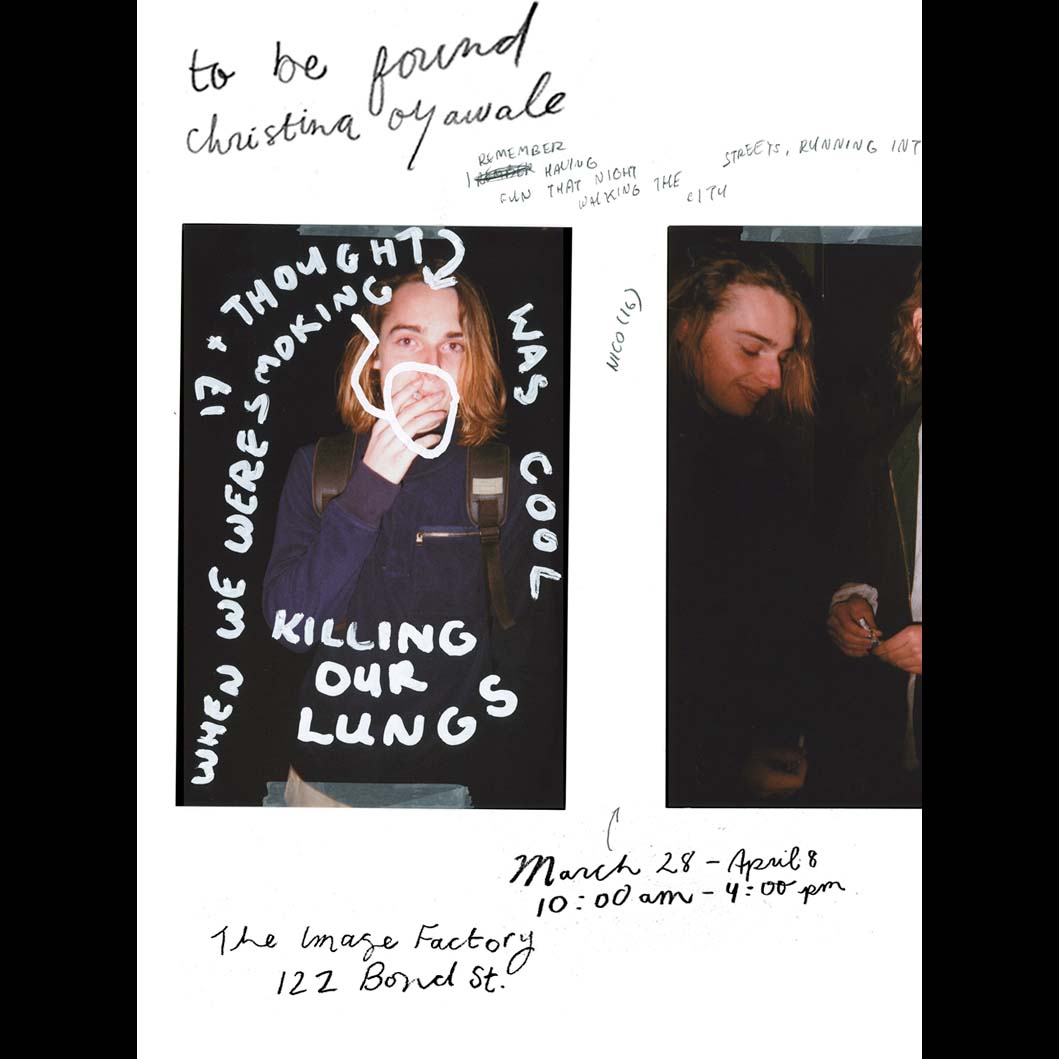 to be found
christina oyawale
REMEMBER
I REMEMBER HAVING
FUN THAT NIGHT
WALKING THE
CITY
STREETS, RUNNING INT
17 + THOUGHT
WHEN WE WERE SMOKING
WAS COOL
KILLING
OUR
LUNGS
NICO (16)
March 28 - April 8
10:00 am - 4:00 pm
The Image Factory
122 Bond St.